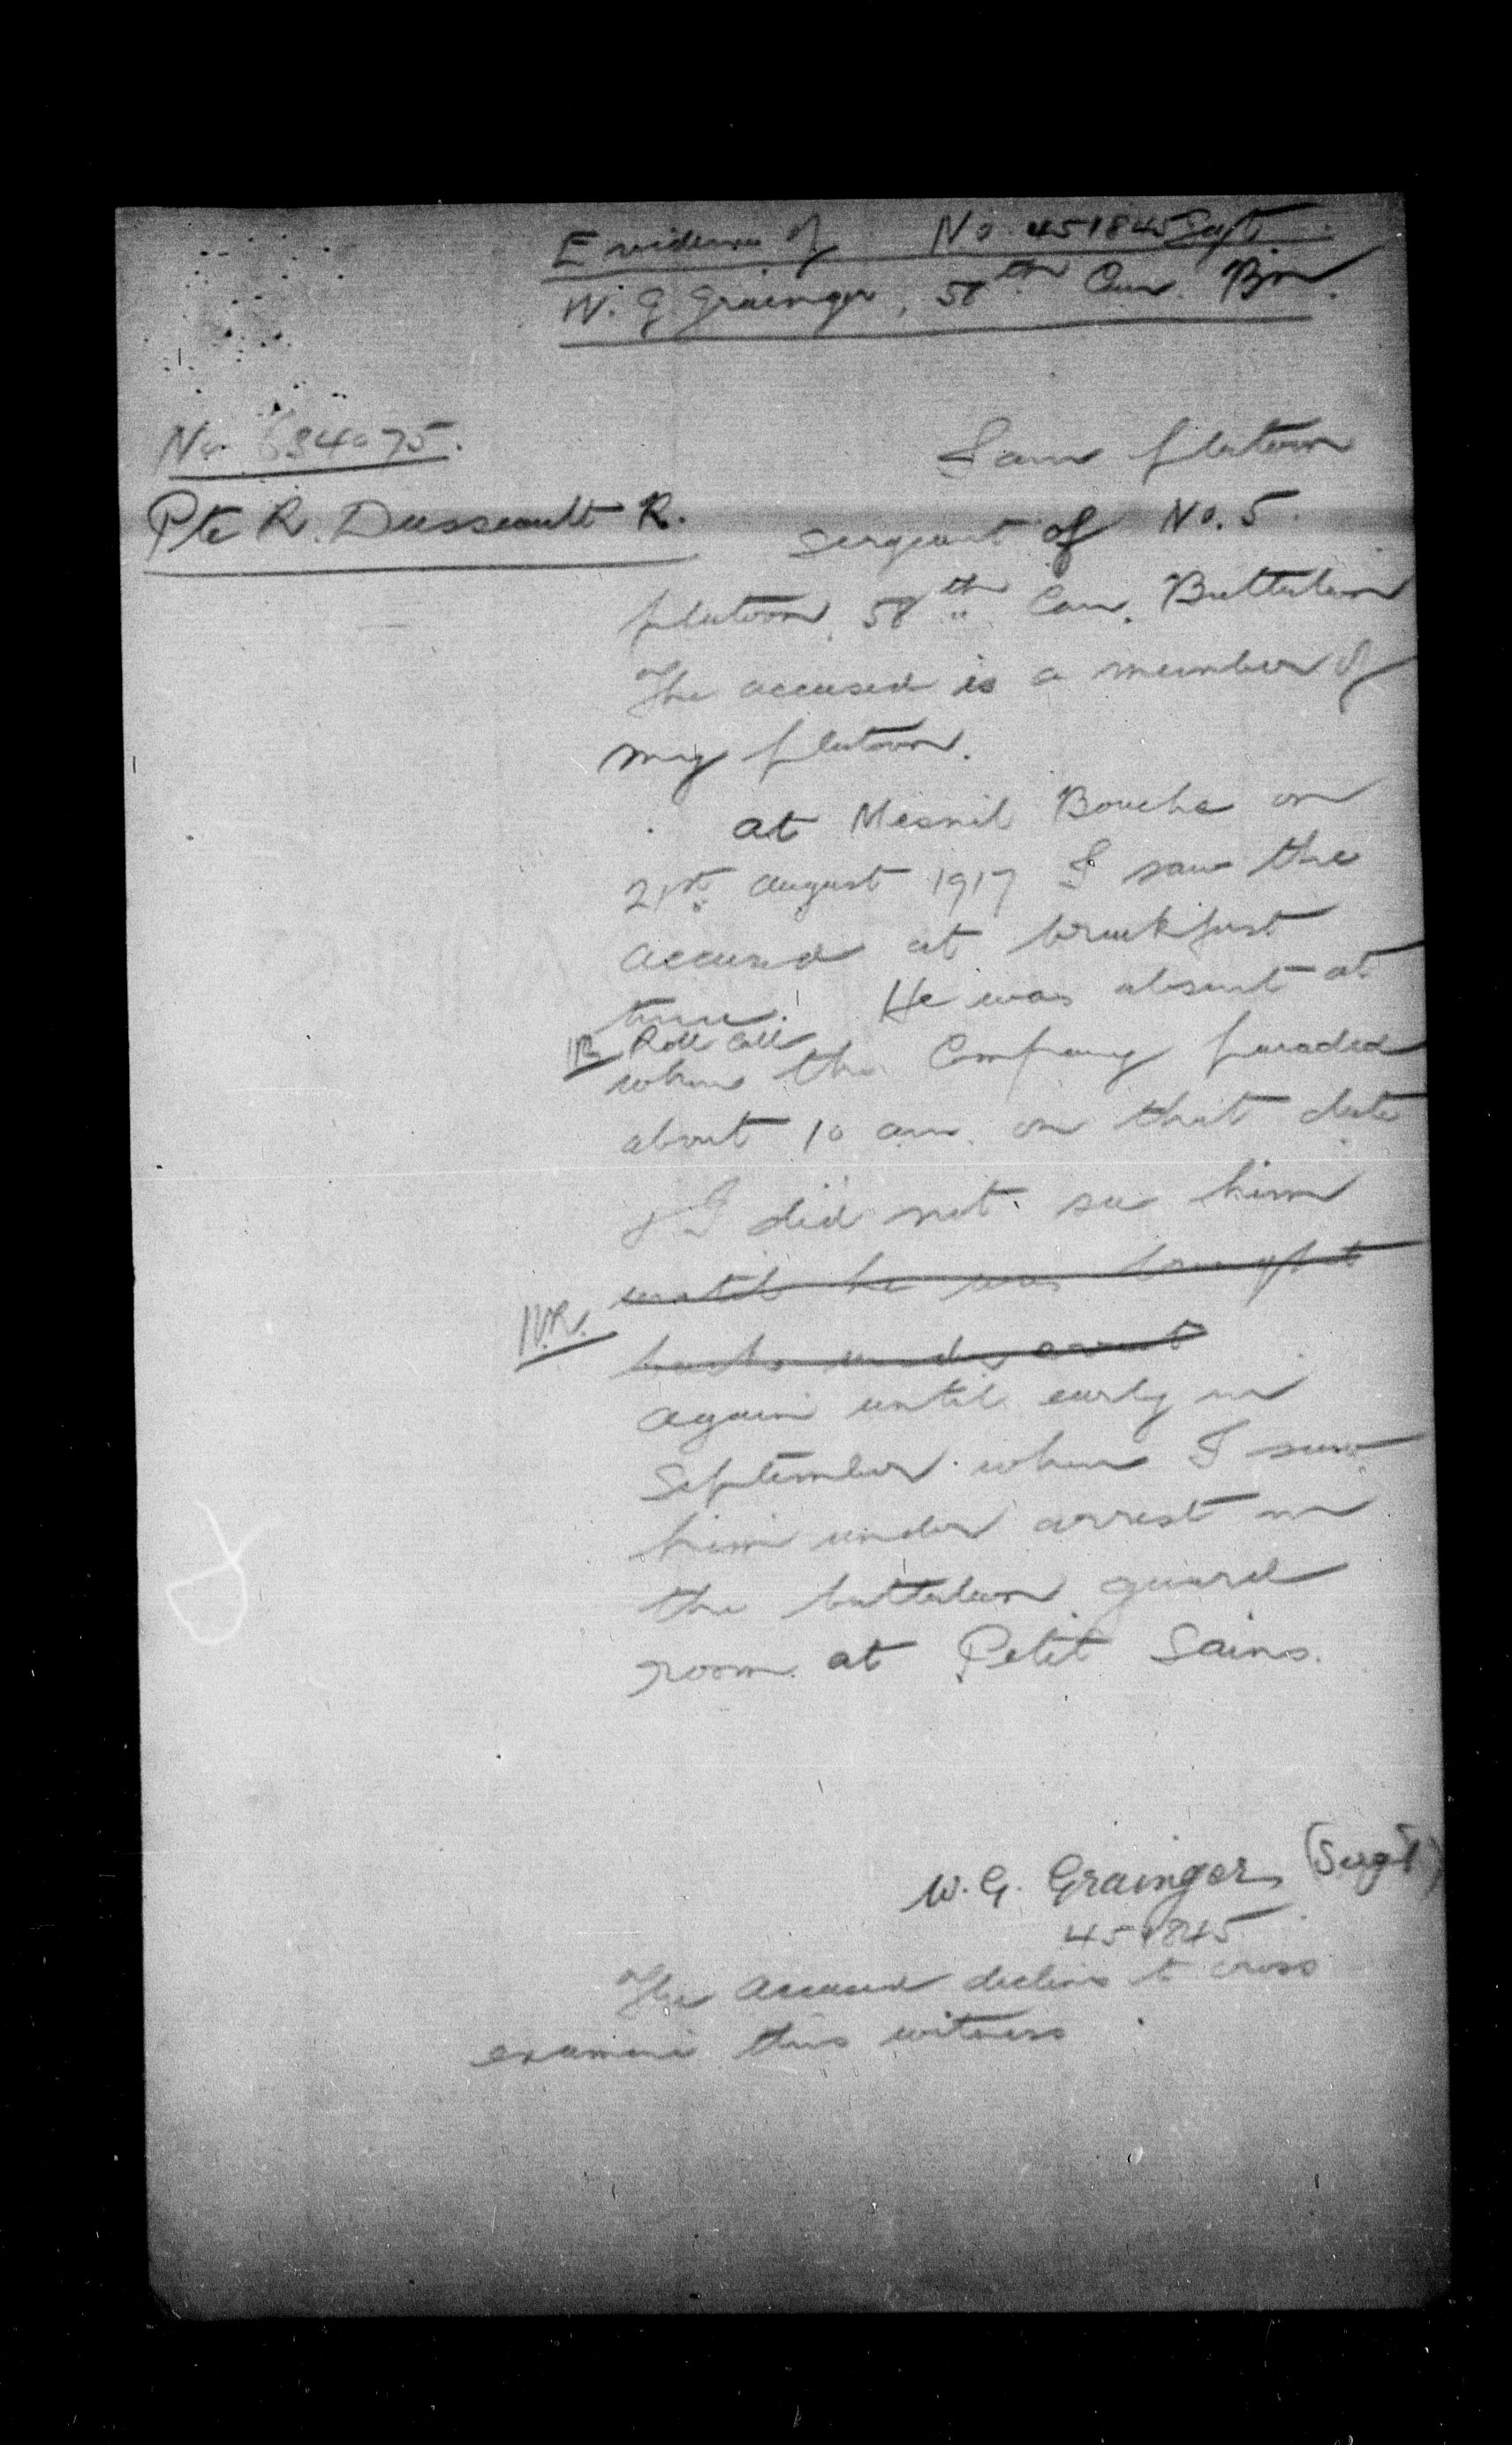 Evidence of No 451845 Sergt.
W. G. Grainger, 58th Can. Bn.
No 634075.
Pte R. Dusseault R.
I am platoon
sergeant of No. 5
platoon, 58th Can. Battalion
The accused is a member of
my platoon.
at Mesnil Bouche on
21st august 1917 I saw the
accused at breakfast
time. He was absent at
Roll Call
when the Company paraded
about 10 am. on that date
& I did not see him
until he was brought
back under arrest
W.R.
again until early in
September when I saw
him under arrest in
the battalion guard
room at Petit Sains.
W. G. Grainger (Sergt)
451845
The accused declines to cross
examine this witness